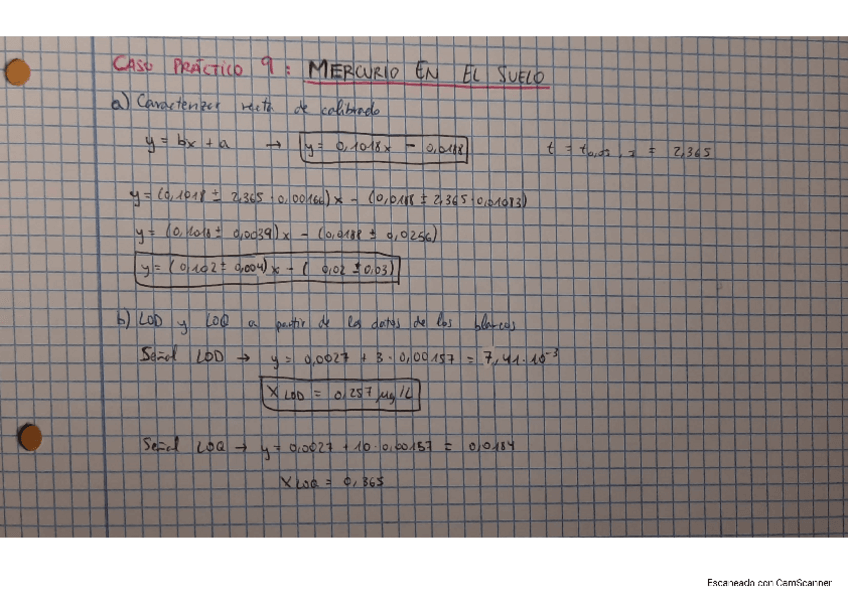 CASO PRÁCTICO 9: MERCURIO EN EL SUELO
a) Caracterizar recta de calibrado
y = bx + a → y = 0,1018x - 0,0188 t = t0,02, 7 = 2,365
y = (0,1018 ± 2,365 · 0,00166)x - (0,0188 ± 2,365 · 0,01083)
y = (0,1018 ± 0,0039)x - (0,0188 ± 0,0256)
y = (0,102 ± 0,004)x - ( 0,02 ± 0,03)
b) LOD y LOQ a partir de los datos de los blancos
Señal LOD → y = 0,0027 + 3 · 0,00157 = 7,41·10⁻³
X LOD = 0,257 µg/L
Señal LOQ → y = 0,0027 + 10 · 0,00157 = 0,0184
X LOQ = 0,365
Escaneado con CamScanner